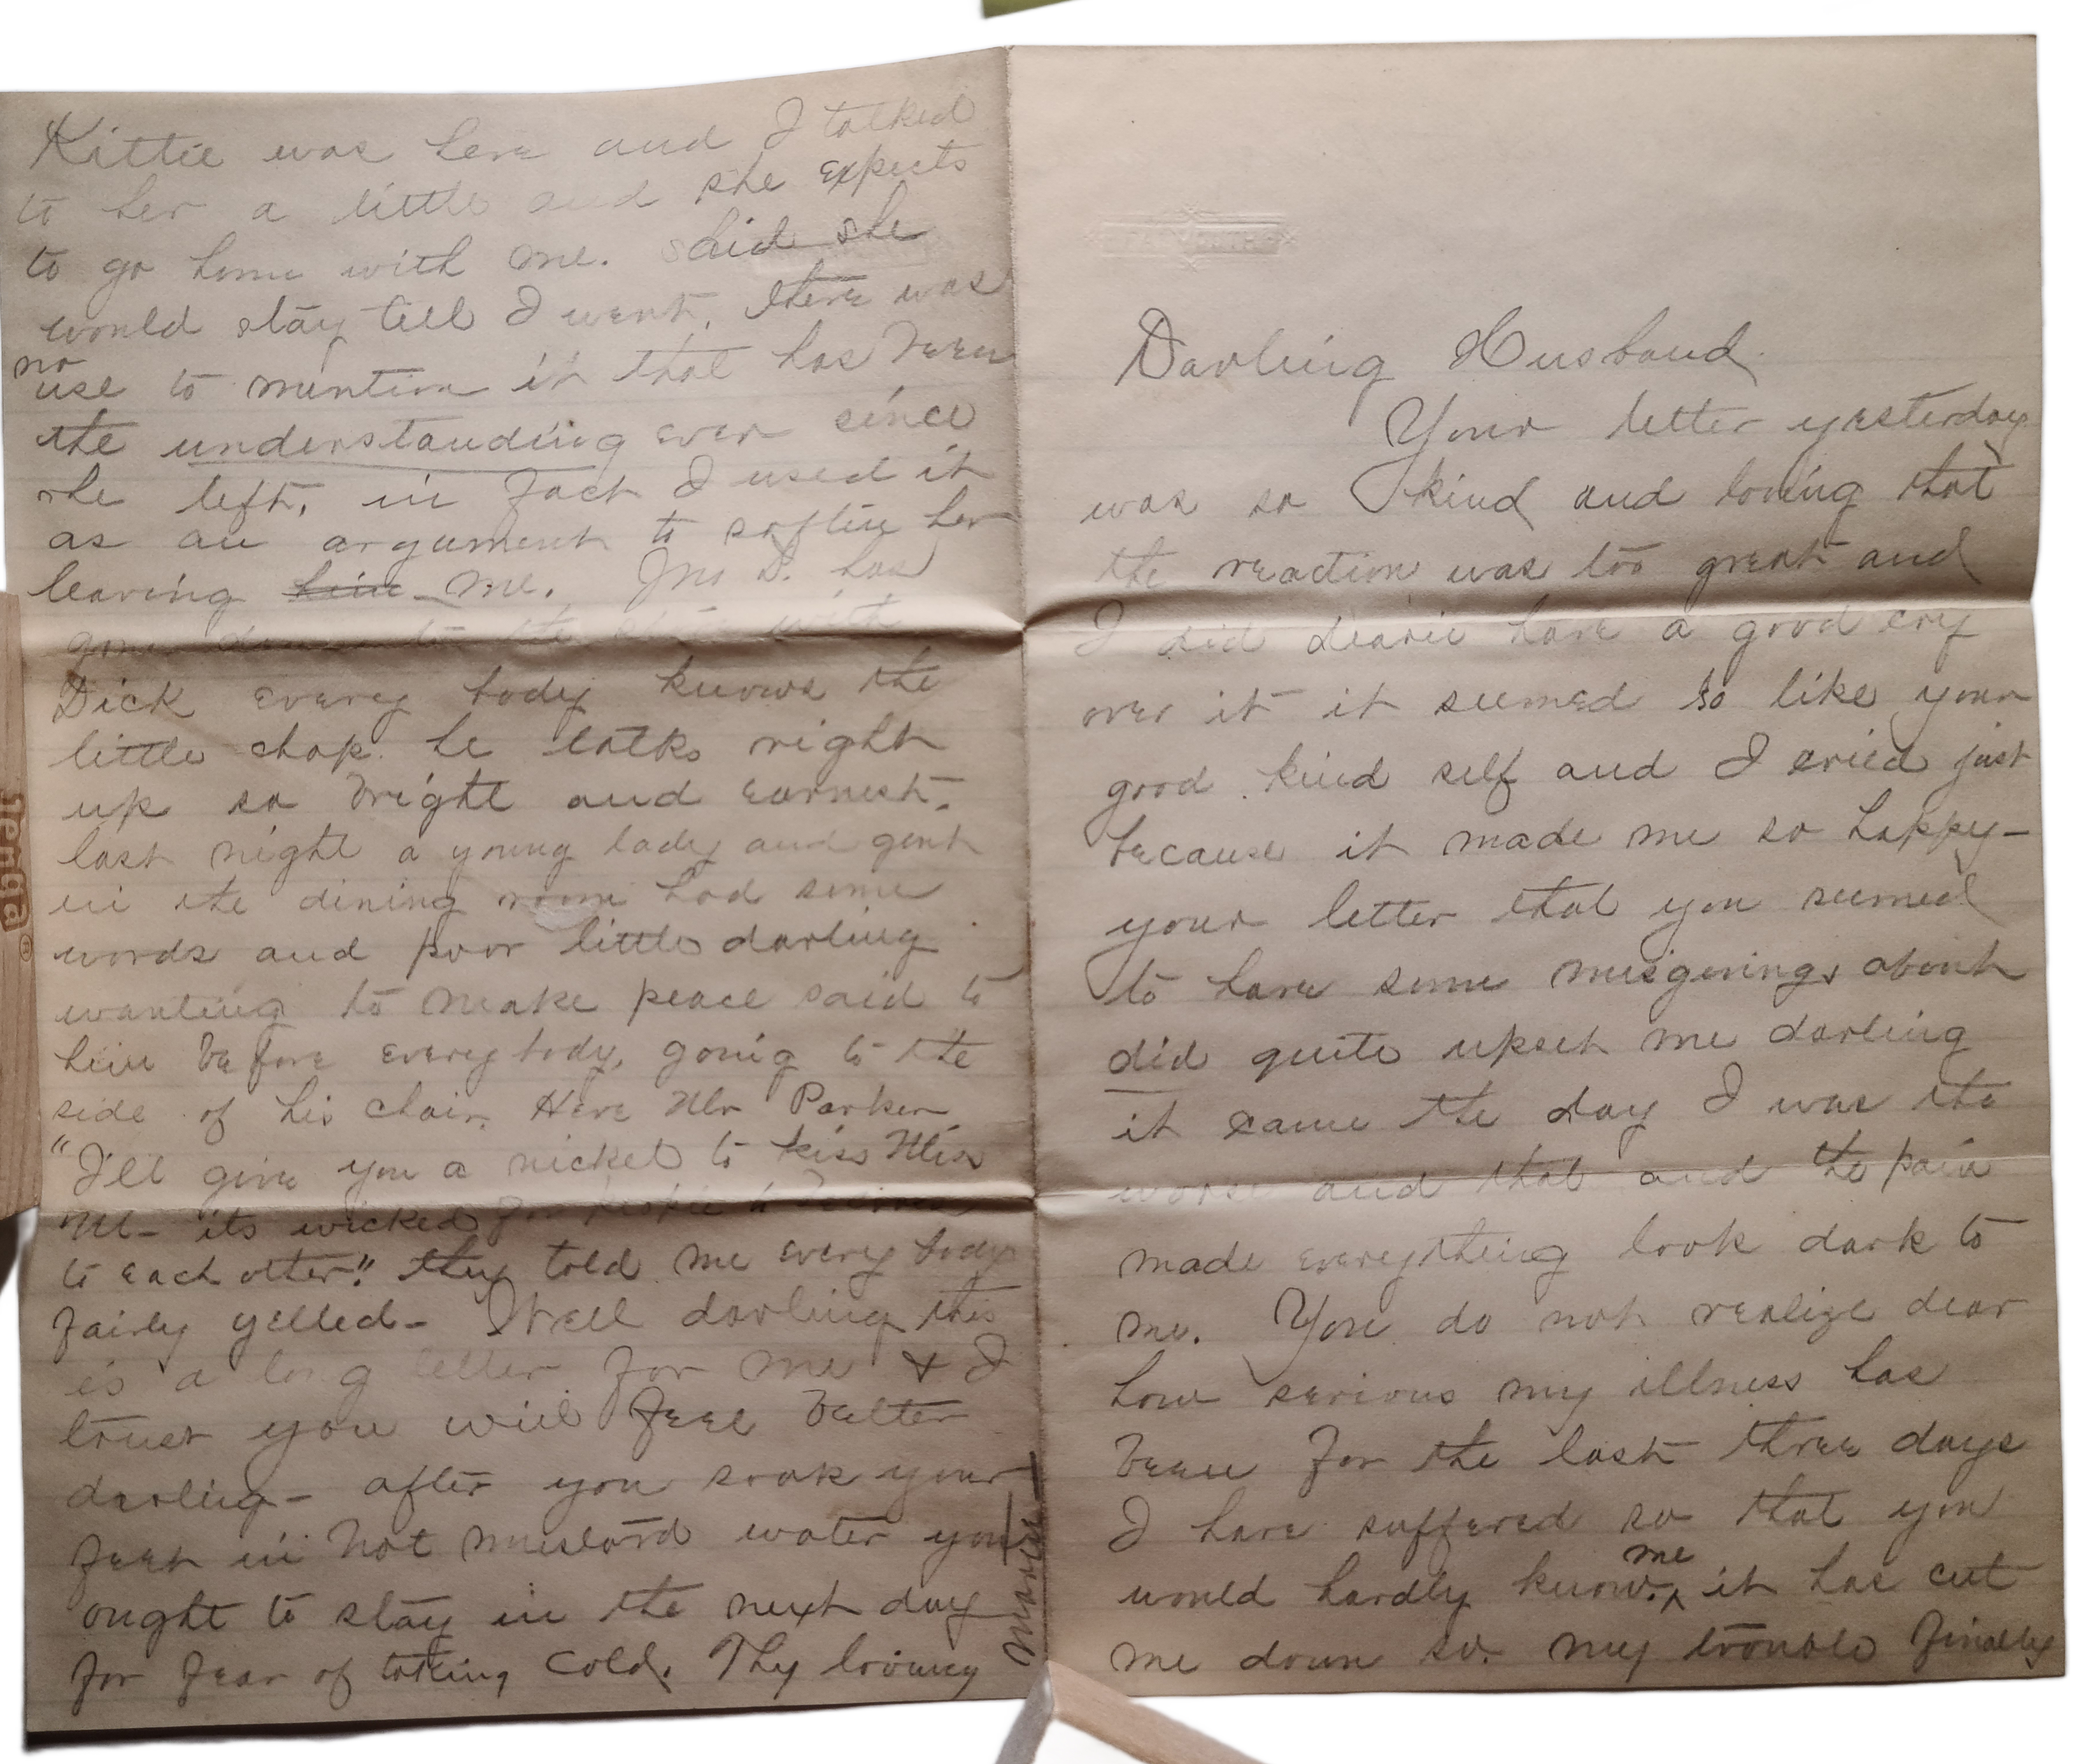 Kittie was here and I talked
to her a little and she expects
to go home with me. said she
would stay till I went. there was
no
use to mention it that has been
the understanding ever since
she left, in fact I used it
as an argument to soften her
leaving him me. Jno D. has
gone down to the with
Dick every body knows the
little chap. he talks right
up so bright and earnest.
last night a young lady and gent
in the dining room had some
words and poor little darling
wanting to make peace said to
him before everybody, going to the
side of his chair. Here Mr Parker
"I'll give you a nickel to kiss Miss
M- its wicked for to
to each other." they told me every body
fairly yelled- Well darling this
is a long letter for me & I
trust you will feel better
darling- after you soak your
feet in hot mustard water you
ought to stay in the next day
for fear of taking cold. Thy loving
Darling Husband
Your letter yesterday
was so kind and loving that
the reaction was too great and
I did dearie have a good cry
over it it seemed so like your
good kind self and I cried just
because it made me so happy-
your letter that you seemed
to have some misgivings about
did quite upset me darling
it came the day I was the
worse and that and the pain
made everything look dark to
me. You do not realize dear
how serious my illness has
been for the last three days
I have suffered so that you
me
would hardly know. ^ it has cut
me down so. my trouble finally
Jenga